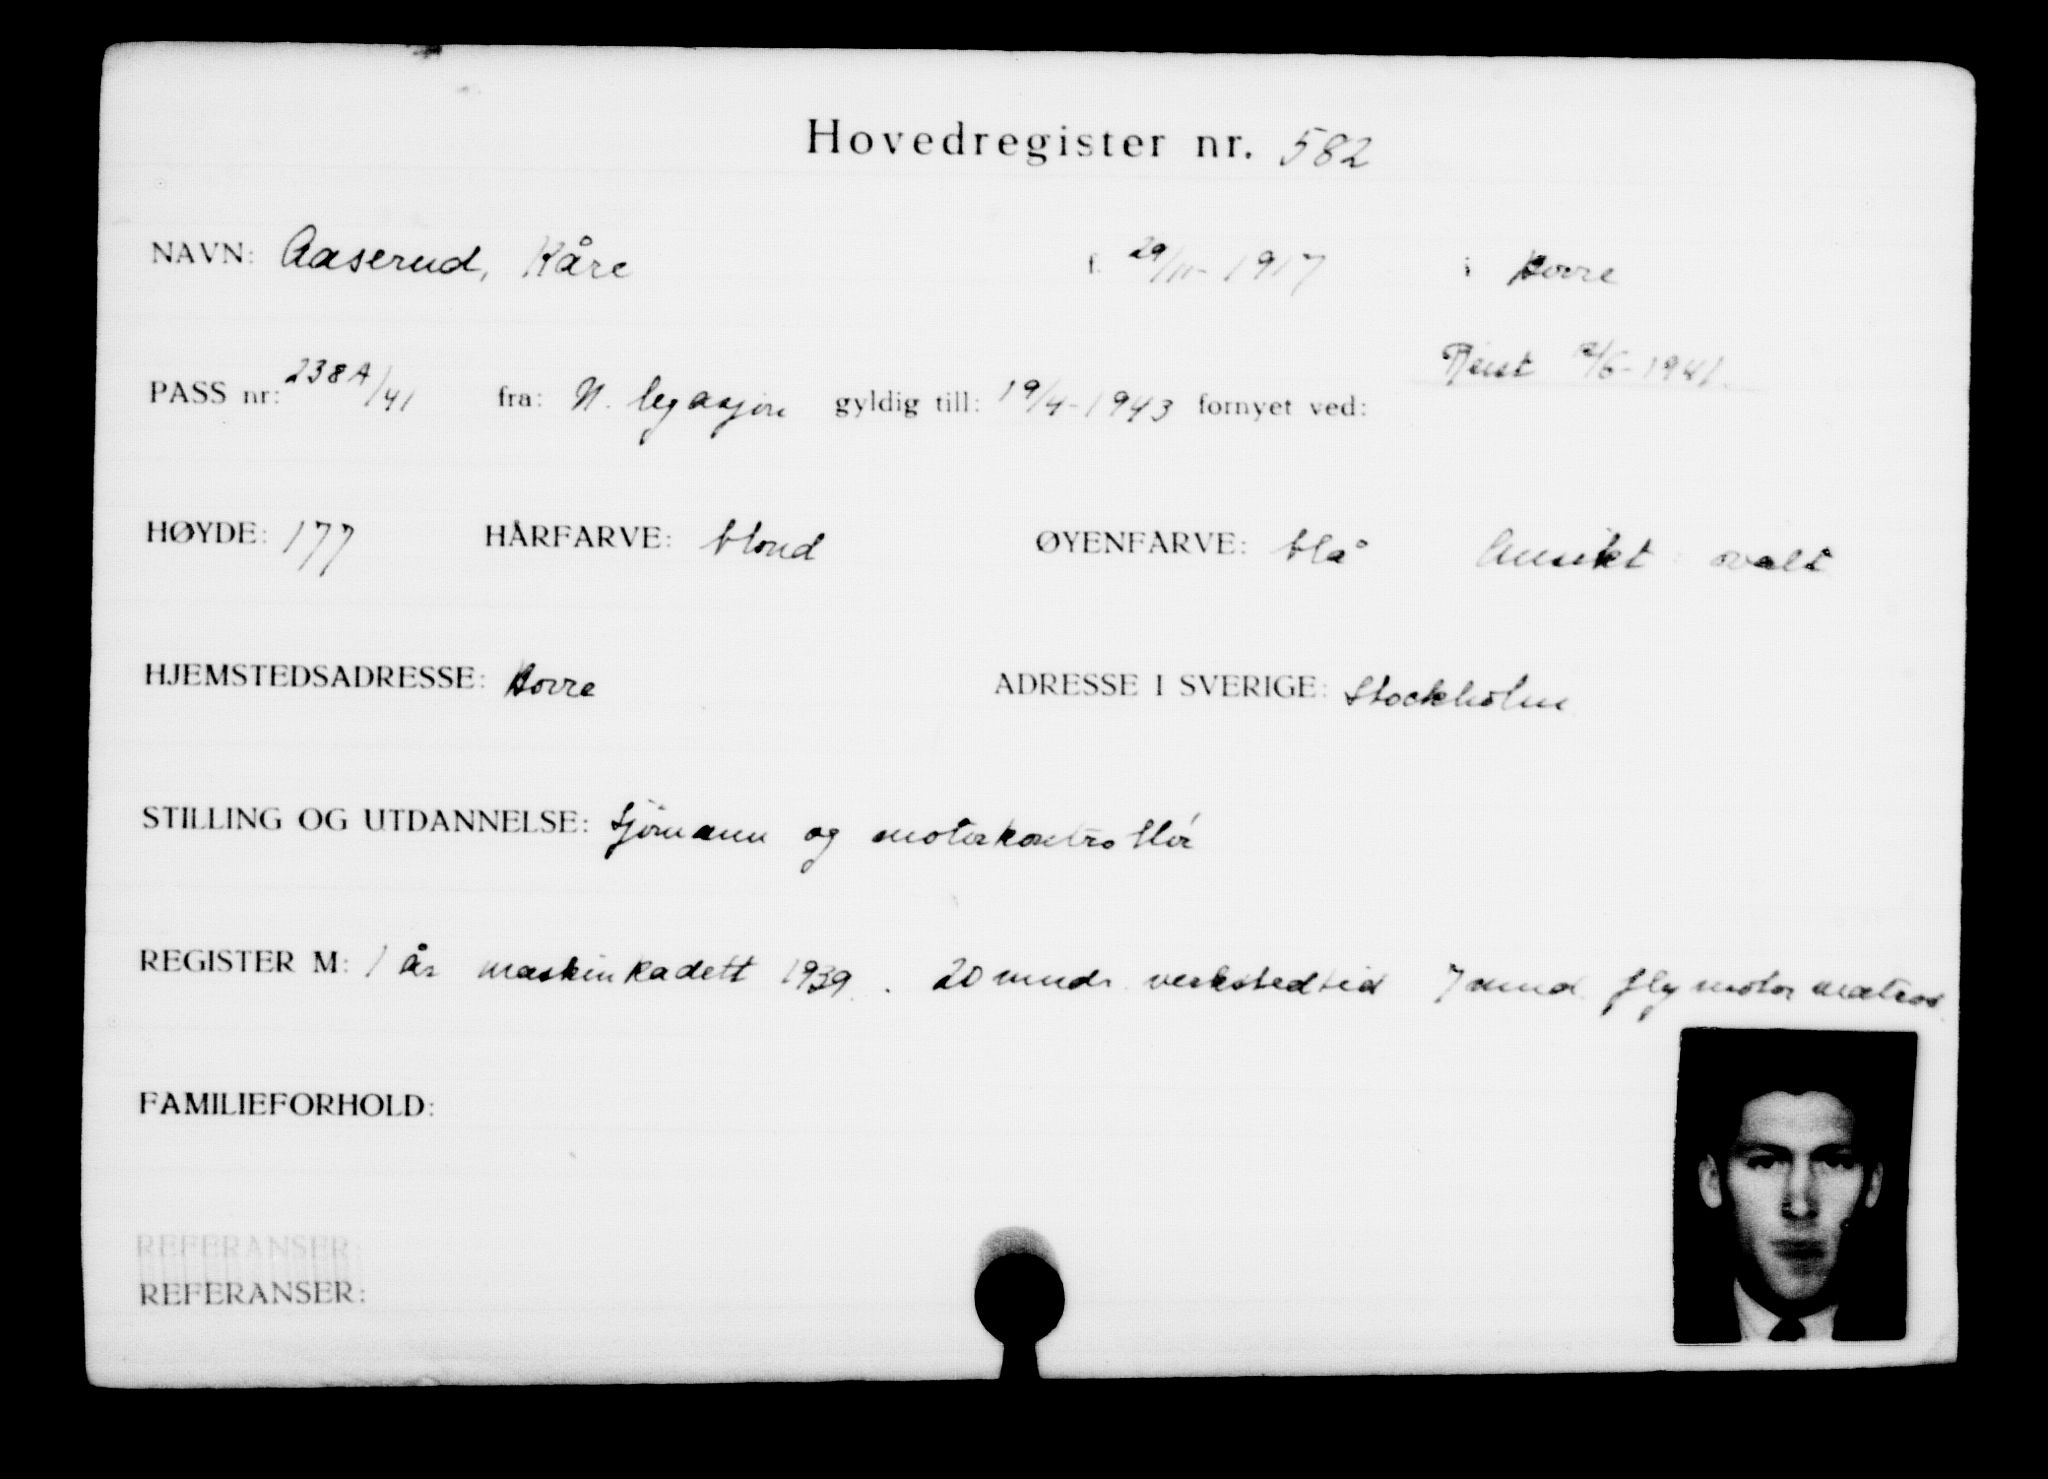 Hovedregister nr. 582
NAVN: Aaserud, Kåre f. 29/11-1917 i Borre
Reist /6-1941.
PASS nr: 238A/41 fra: N. legasjon gyldig till: 19/4-1943 fornyet ved:
HØYDE: 177 HÅRFARVE: blond ØYENFARVE: blå Ansikt: ovalt
HJEMSTEDSADRESSE: Borre ADRESSE I SVERIGE: Stockholm
STILLING OG UTDANNELSE: Sjømann og motorkontrollør
REGISTER M: 1 år maskinkadett 1939. 20 mndr. verkstedtid 7 mnd. flymotor
FAMILIEFORHOLD:
REFERANSER:
REFERANSER: